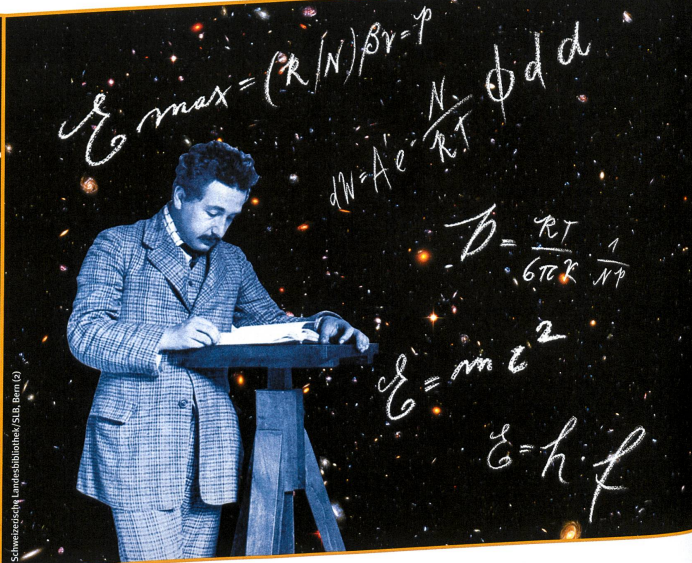 E max = (R/N)βν = P
dW = A'e - N/RT φ d d
D = RT/6πK 1/NP
E = mc²
E = h·f
Schweizerische Landesbibliothek/SLB, Bern (2)